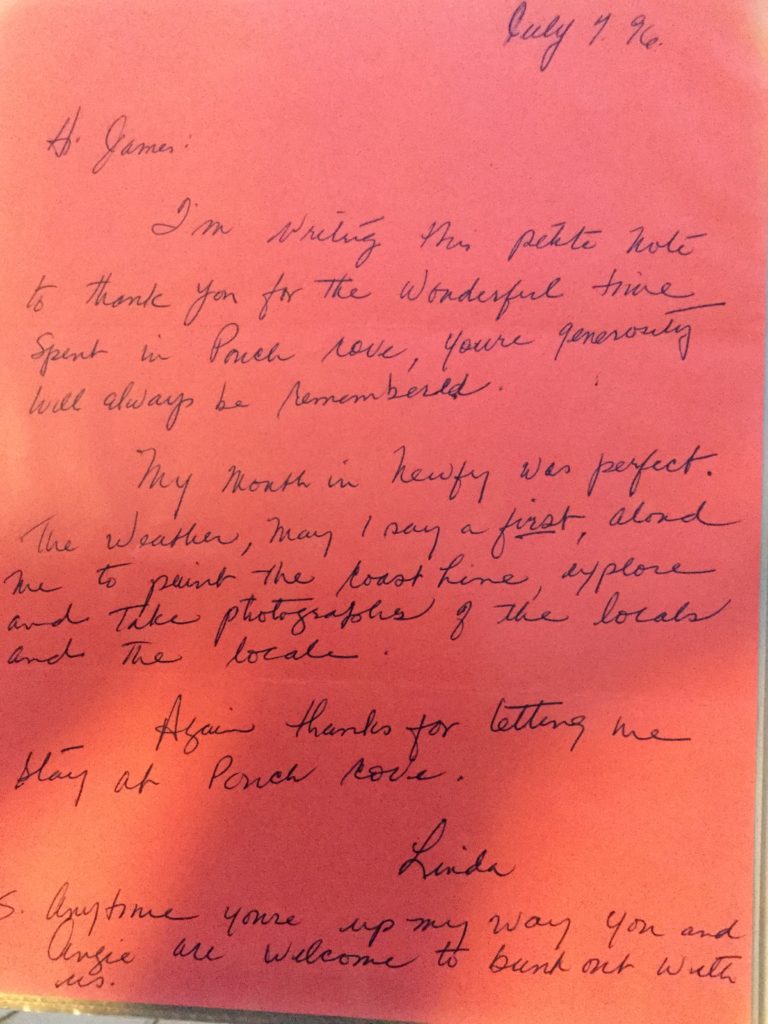 July 7. 96.
Hi James:
I'm writing this petite note
to thank you for the wonderful time
spent in Pouch Cove, youre generosity
will always be remembered.
My month in Newfy was perfect.
The weather, may I say a first, alowd
me to paint the coast line, explore
and take photographs of the locals
and the locale.
Again thanks for letting me
stay at Pouch Cove.
Linda
S. Anytime youre up my way you and
Angie are welcome to bunk out with
us.